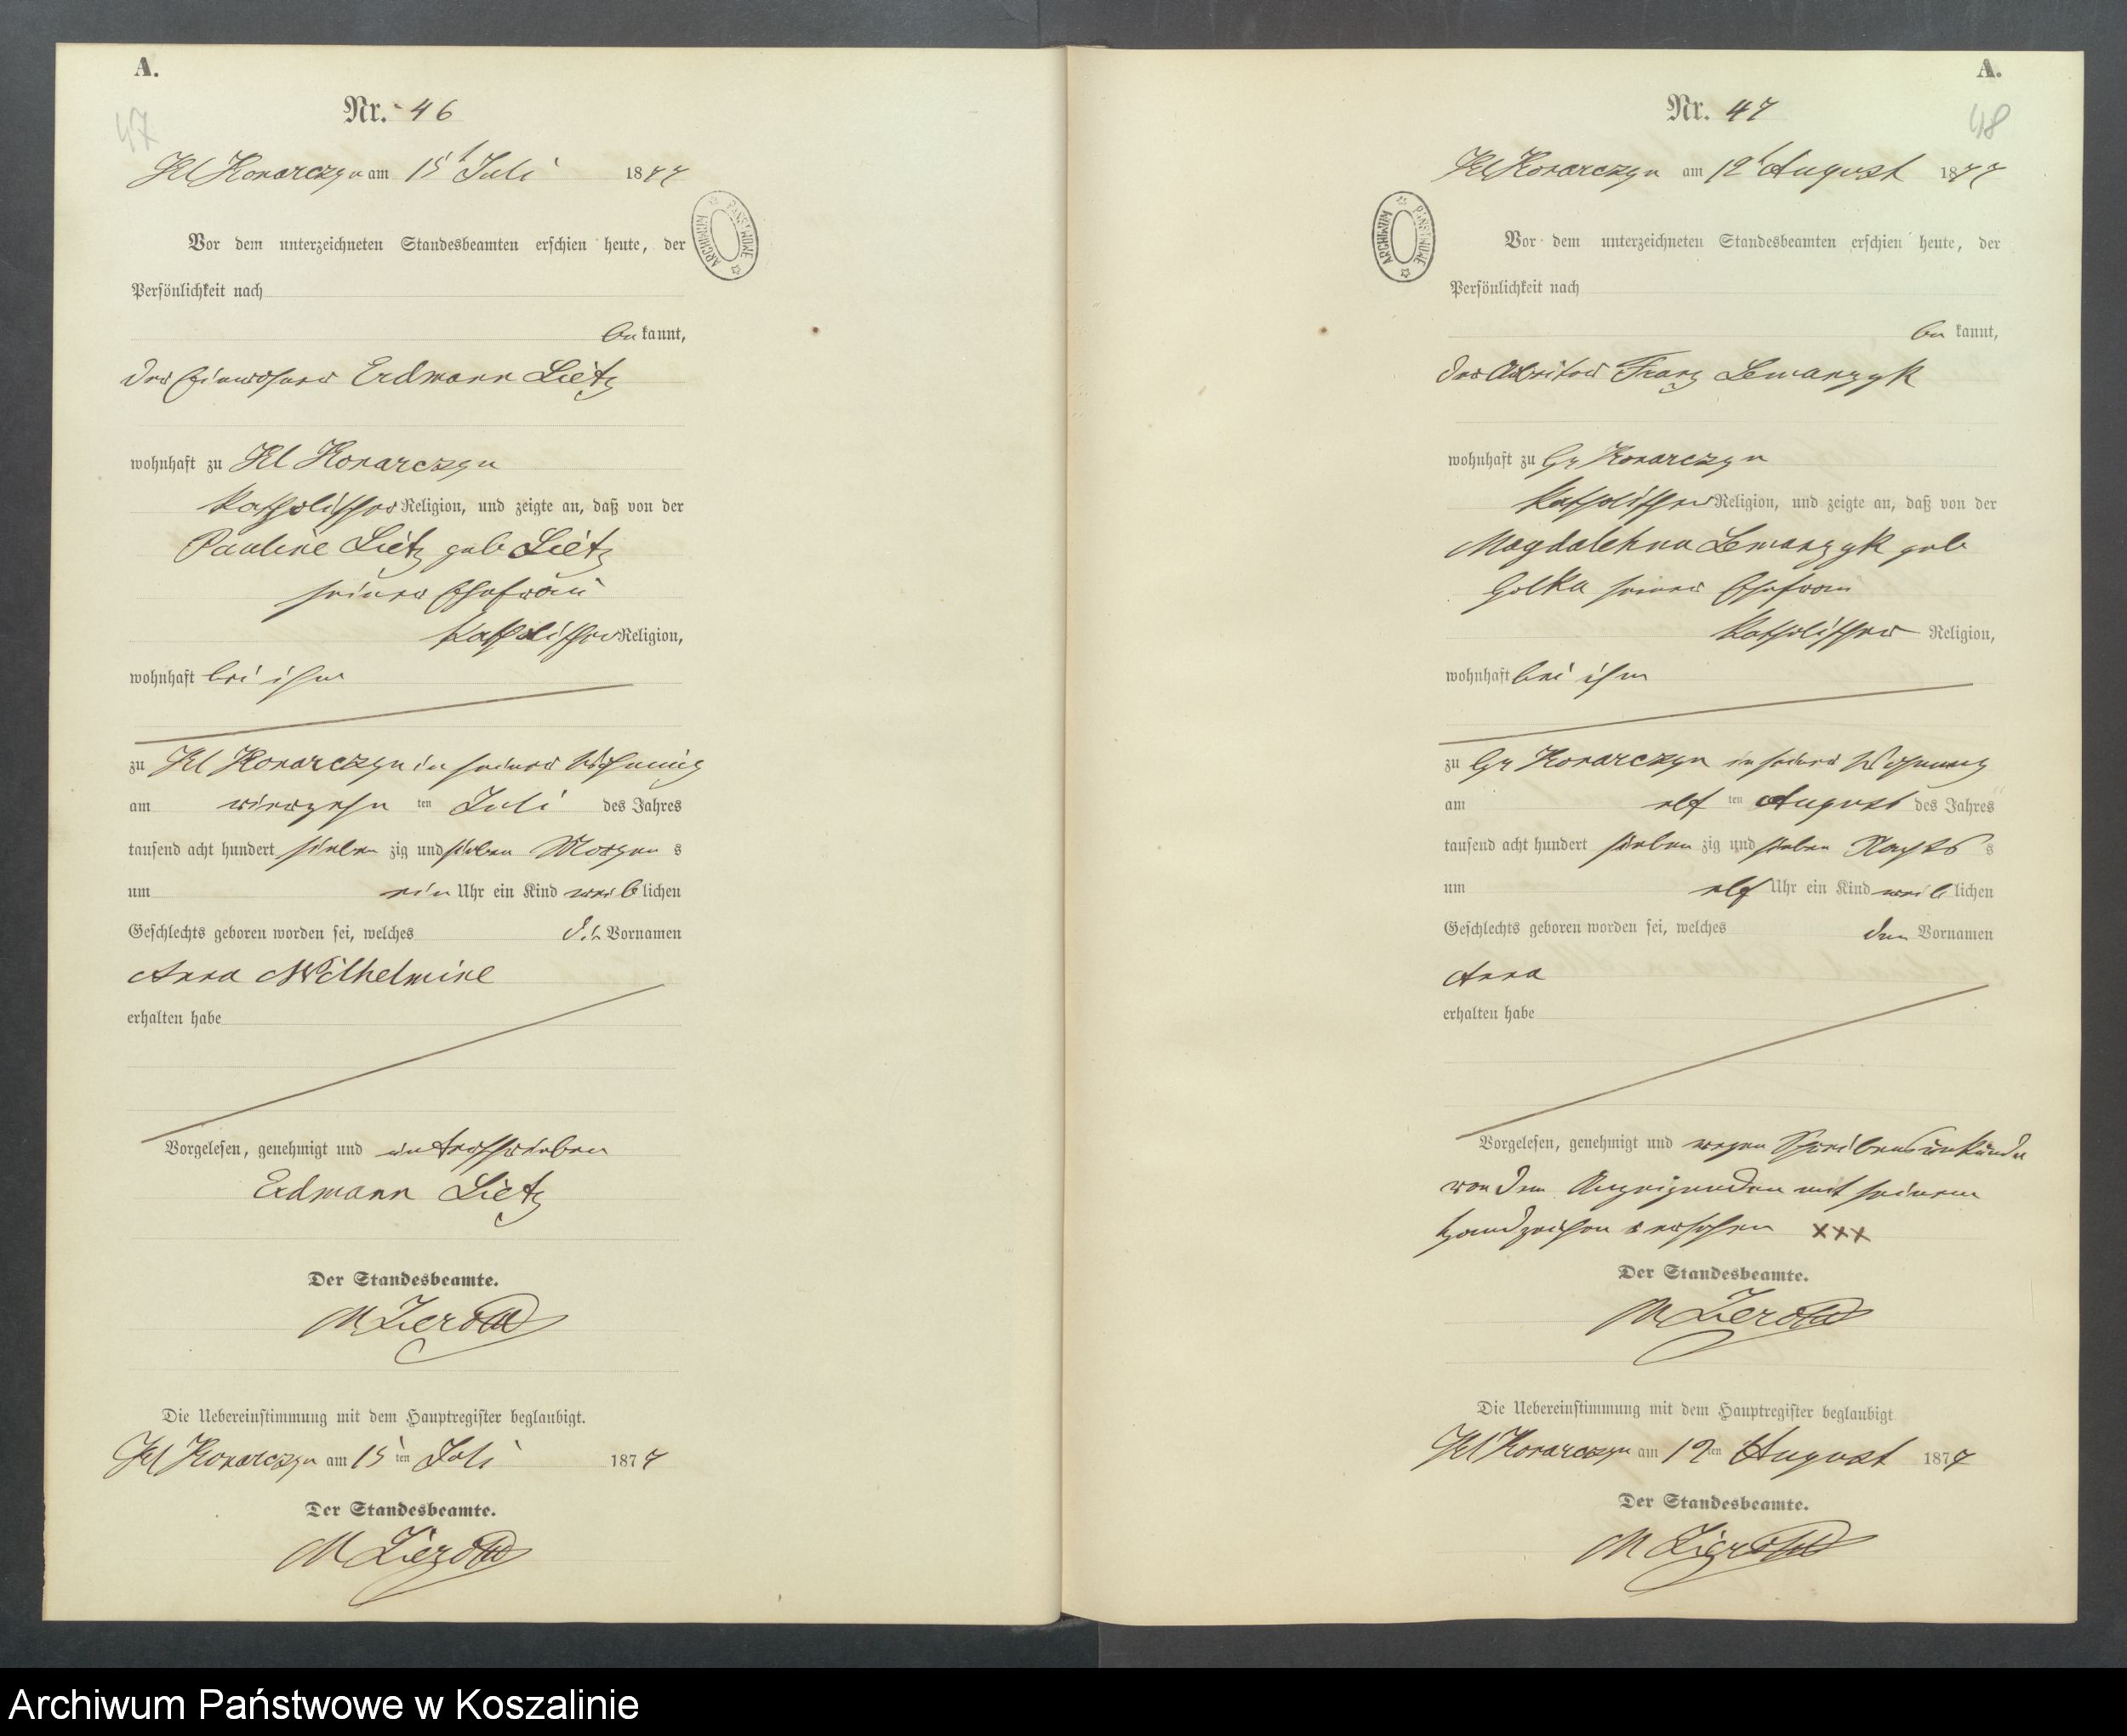 A.
47
Nr. 46
Kl Konarczyn am 15t Juli 1877
ARCHIWUM PAŃSTWOWE
Vor dem unterzeichneten Standesbeamten erschien heute, der
Persönlichkeit nach
be kannt,
der Einwohner Erdmann Lietz
wohnhaft zu Kl Konarczyn
katholischer Religion, und zeigte an, daß von der
Pauline Lietz geb Lietz
seiner Ehefrau
katholischer Religion,
wohnhaft bei ihm
zu Kl Konarczyn in seiner Wohnung
am vierzehn ten Juli des Jahres
tausend acht hundert sieben zig und sieben Morgen s
um ein Uhr ein Kind weib lichen
Geschlechts geboren worden sei, welches die Vornamen
Anna Wilhelmine
erhalten habe
Vorgelesen, genehmigt und unterschrieben
Erdmann Lietz
Der Standesbeamte.
Die Uebereinstimmung mit dem Hauptregister beglaubigt.
Kl Konarczyn am 15 ten Juli 1877
Der Standesbeamte.
A.
48
Nr. 47
Kl Konarczyn am 12t August 1877
ARCHIWUM PAŃSTWOWE
Vor dem unterzeichneten Standesbeamten erschien heute, der
Persönlichkeit nach
be kannt,
der Arbeiter Franz Lewanzyk
wohnhaft zu Gr Konarczyn
katholischer Religion, und zeigte an, daß von der
Magdalehna Lewanzyk geb
Golka seiner Ehefrau
katholischer Religion,
wohnhaft bei ihm
zu Gr Konarczyn in seiner Wohnung
am elf ten August des Jahres
tausend acht hundert sieben zig und sieben Nachts s
um elf Uhr ein Kind weib lichen
Geschlechts geboren worden sei, welches den Vornamen
Anna
erhalten habe
Vorgelesen, genehmigt und wegen Schreibensunkunde
von dem Anzeigenden mit seinem
Handzeichen versehen xxx
Der Standesbeamte.
Die Uebereinstimmung mit dem Hauptregister beglaubigt.
Kl Konarczyn am 12 ten August 1877
Der Standesbeamte.
Archiwum Państwowe w Koszalinie